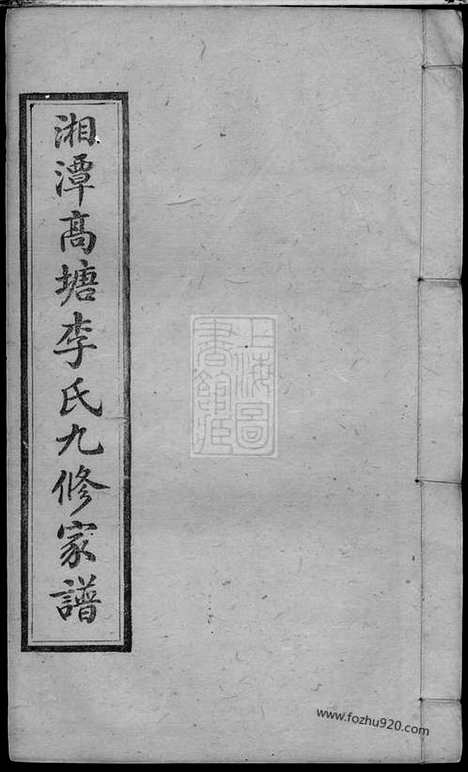 湘潭高塘李氏九修家譜
上海圖
書館藏
www.fozhu920.com